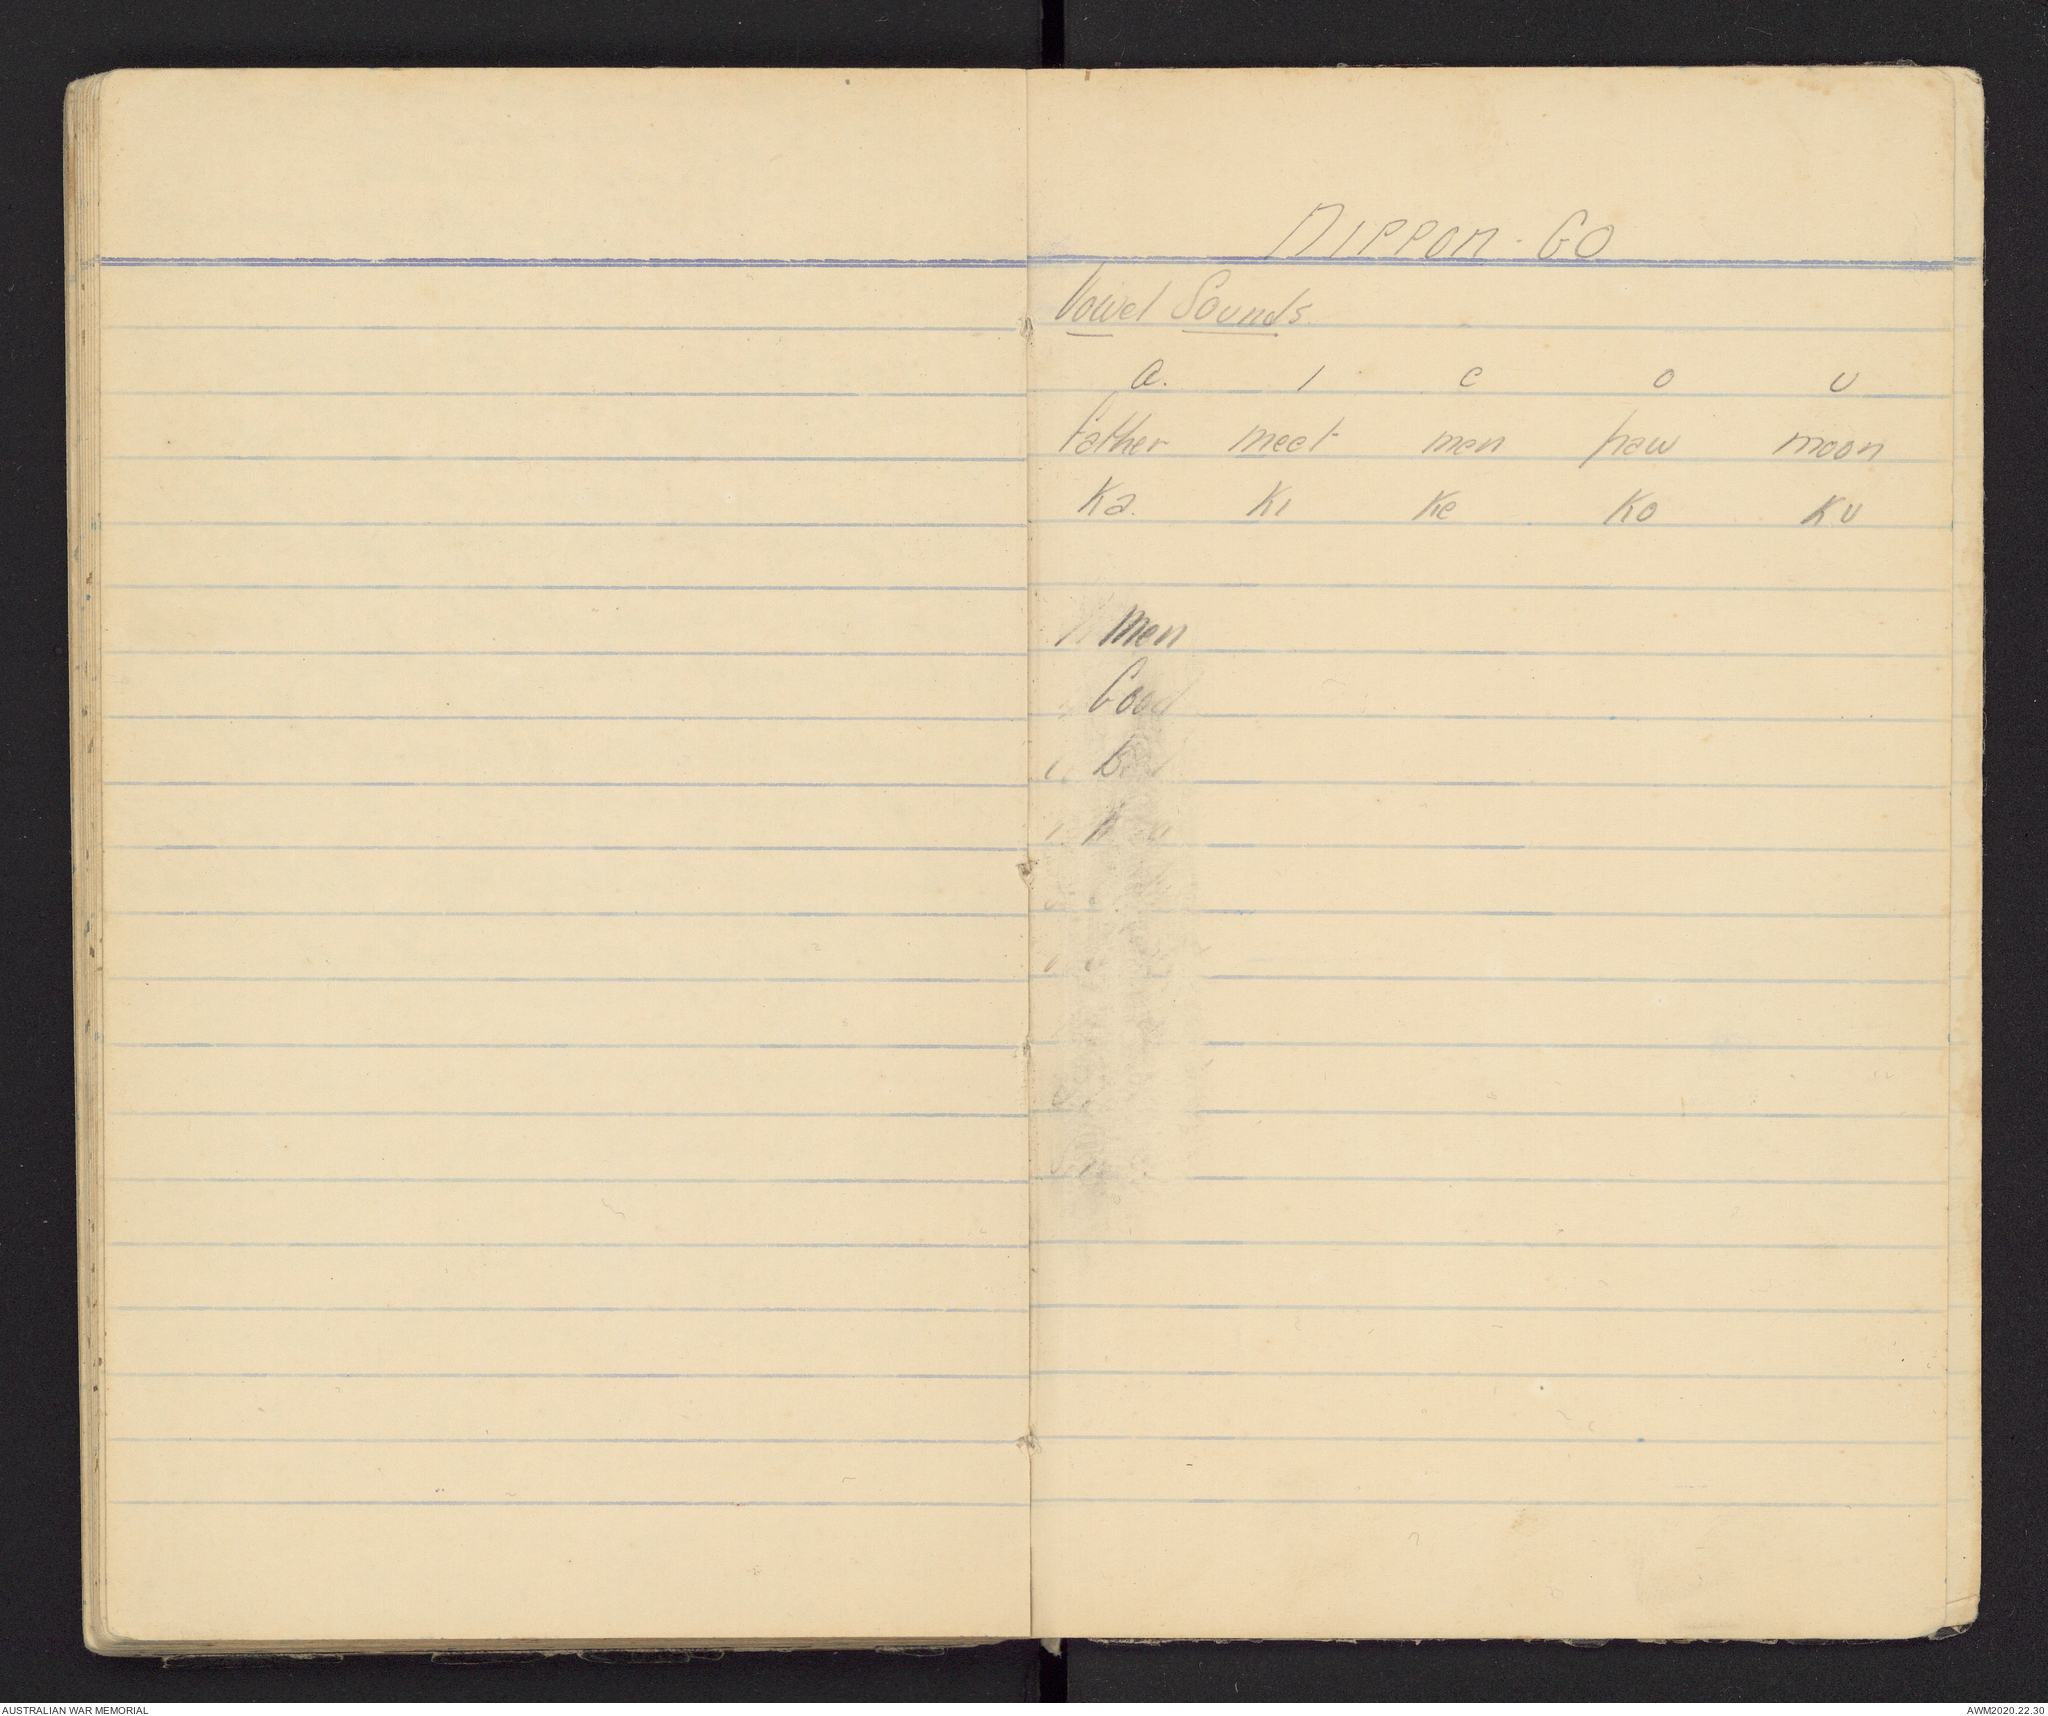 NIPPON-GO
Vowel Sounds.
a. i e o u
father meet men paw moon
Ka. Ki Ke Ko Ku
Men
Good
AUSTRALIAN WAR MEMORIAL
AWM2020.22.30